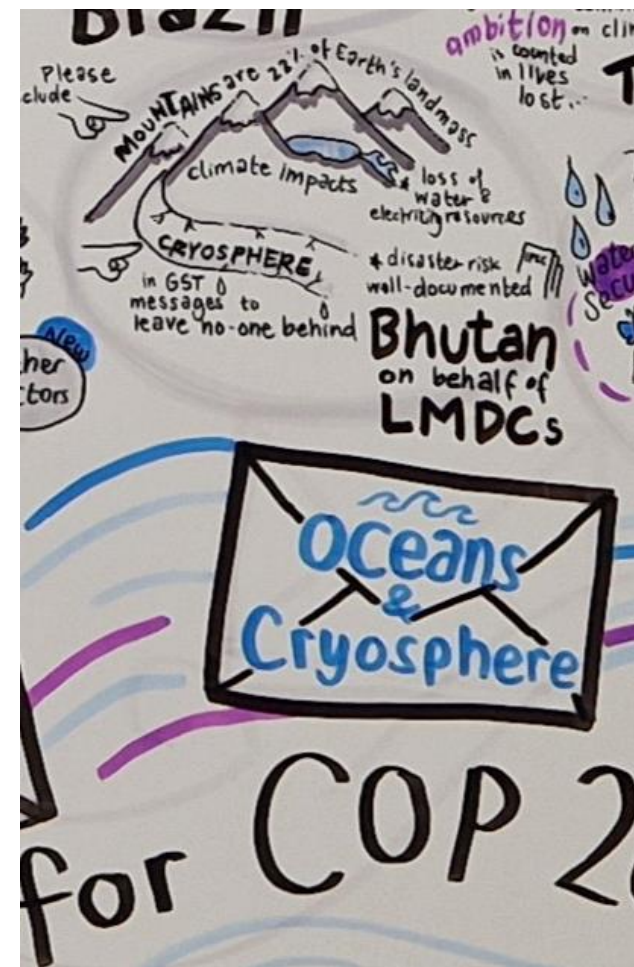 Brazil
ambition on
is counted
in lives
lost...
Please
MOUNTAINS are 22% of Earth's landmass
climate impacts
* loss of
water &
electricity resources
CRYOSPHERE
in GST
messages to
leave no-one behind
* disaster risk
well-documented
IPCC
Bhutan
on behalf of
LMDCs
Water
New
Oceans
&
Cryosphere
for COP